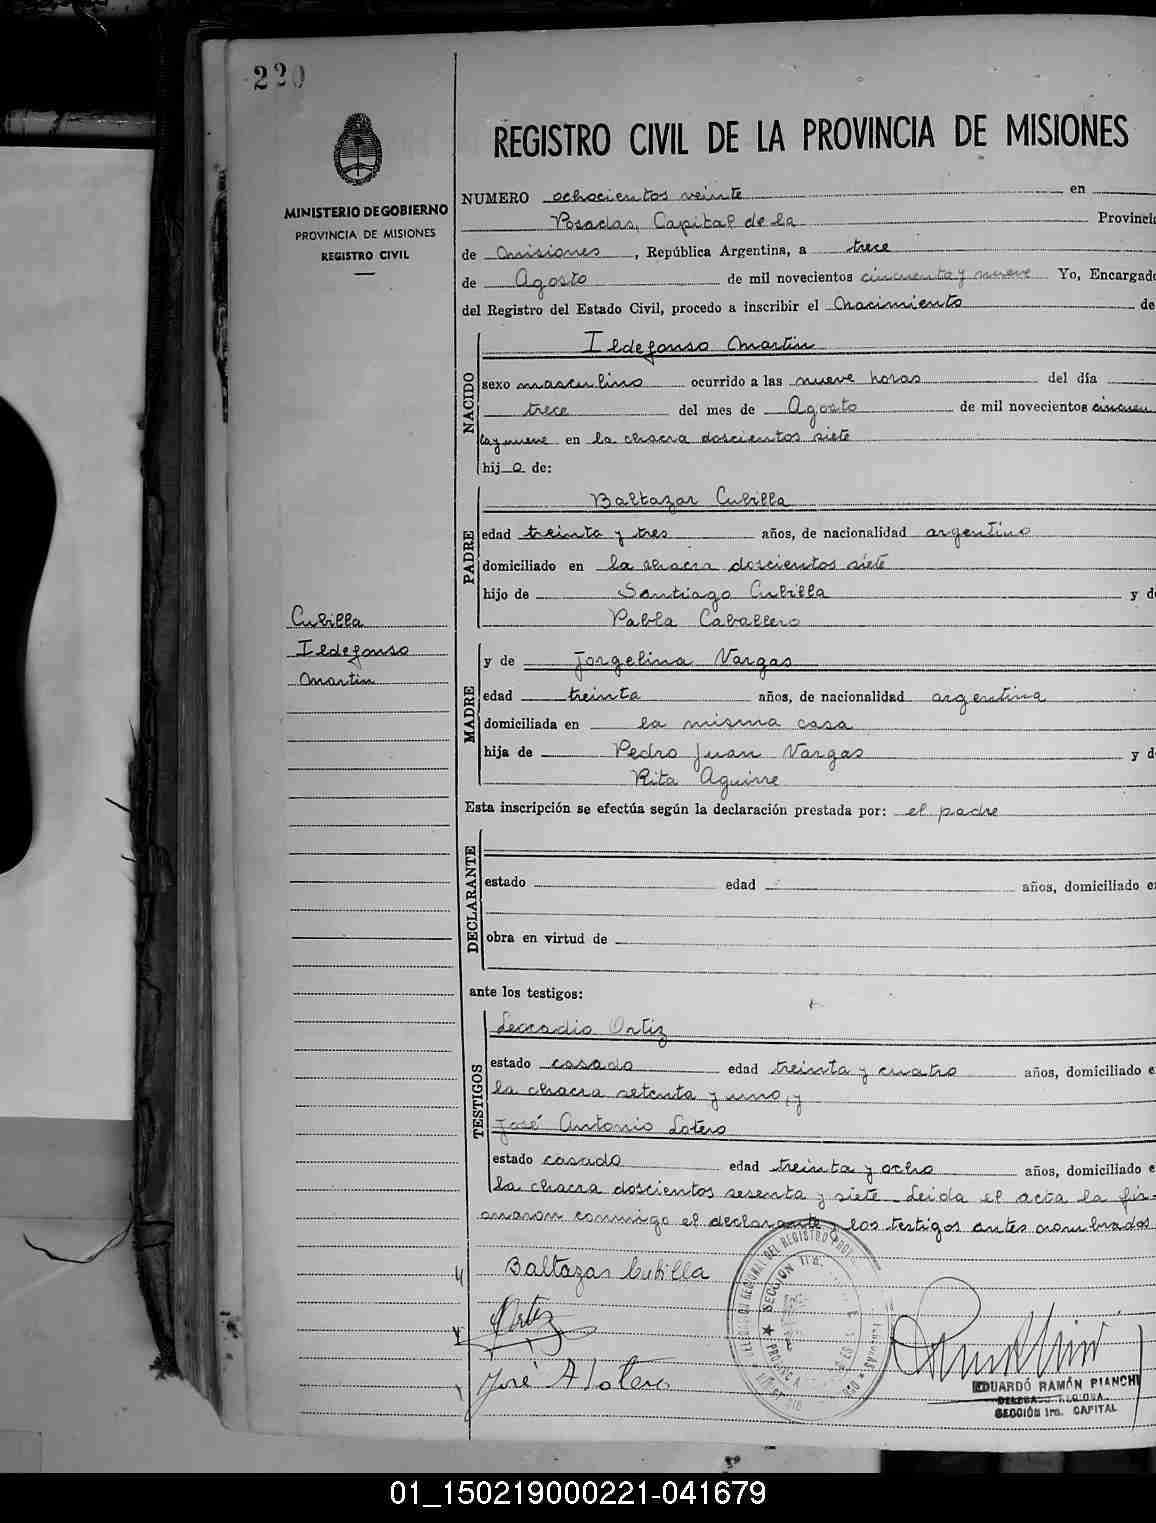 220
REGISTRO CIVIL DE LA PROVINCIA DE MISIONES
MINISTERIO DE GOBIERNO
PROVINCIA DE MISIONES
REGISTRO CIVIL
NUMERO ochocientos veinte en
Posadas, Capital de la Provincia
de Misiones, República Argentina, a trece
de Agosto de mil novecientos cincuenta y nueve Yo, Encargado
del Registro del Estado Civil, procedo a inscribir el Nacimiento de
NACIDO
Ildefonso Martin
sexo masculino ocurrido a las nueve horas del día
trece del mes de Agosto de mil novecientos cincuen
ta y nueve en la chacra doscientos siete
hij o de:
PADRE
Baltazar Cubilla
edad treinta y tres años, de nacionalidad argentino
domiciliado en la chacra doscientos siete
hijo de Santiago Cubilla y d
Pabla Caballero
Cubilla
Ildefonso
Martin
MADRE
y de Jorgelina Vargas
edad treinta años, de nacionalidad argentina
domiciliada en la misma casa
hija de Pedro Juan Vargas y d
Rita Aguirre
Esta inscripción se efectúa según la declaración prestada por: el padre
DECLARANTE
estado edad años, domiciliado e
obra en virtud de
ante los testigos:
TESTIGOS
Leocadio Ortiz
estado casado edad treinta y cuatro años, domiciliado e
la chacra setenta y uno, y
José Antonio Lotero
estado casado edad treinta y ocho años, domiciliado e
la chacra doscientos sesenta y siete Leida el acta la fir-
maron conmigo el declarante y los testigos antes nombrados
Baltazar Cubilla
Ortiz
José A Lotero
DELEGACION REGIONAL DEL REGISTRO
SECCION 1ra.
EDUARDO RAMÓN PIANCHI
DELEGADO REGIONAL
SECCIÓN 1ra. CAPITAL
01_150219000221-041679